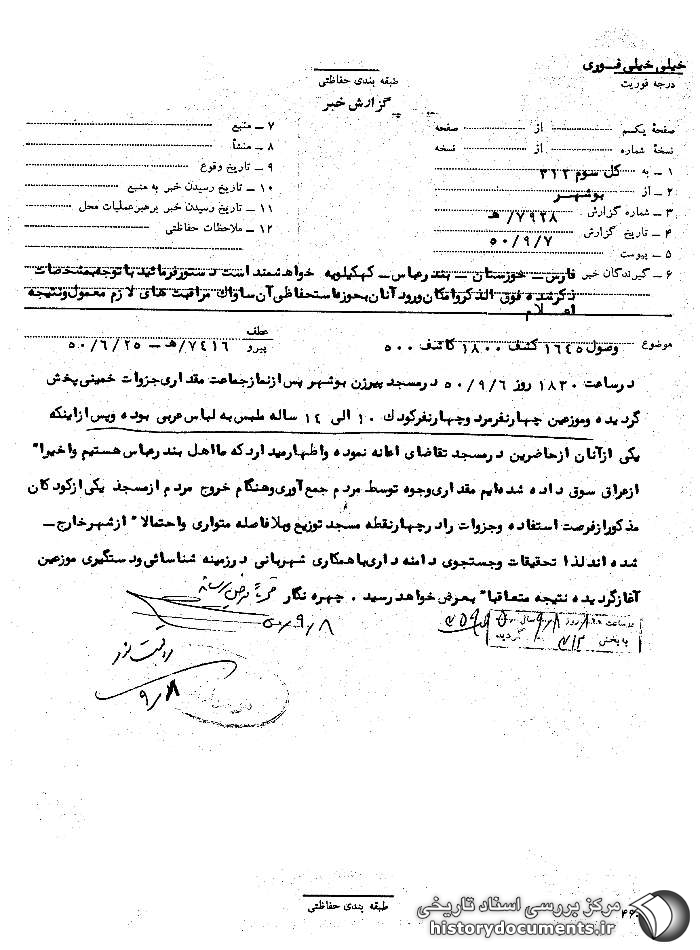 خیلی خیلی فـوری
درجه فوریت
طبقه بندی حفاظتی
گزارش خبر
صفحهٔ یکم از صفحه
نسخهٔ شماره از نسخه
۱ ـ به کل سوم ۳۱۲
۲ ـ از بوشهـر
۳ ـ شماره گزارش ۷۹۲۸/هـ
۴ ـ تاریخ گزارش ۵۰/۹/۷
۵ ـ پیوست
۷ ـ منبع
۸ ـ منشأ
۹ ـ تاریخ وقوع
۱۰ ـ تاریخ رسیدن خبر به منبع
۱۱ ـ تاریخ رسیدن خبر برهبرعملیات محل
۱۲ ـ ملاحظات حفاظتی
۶ ـ گیرندگان خبر فارس ـ خوزستان ـ بندرعباس ـ کهکیلویه خواهشمند است دستورفرمائید باتوجه بمشخصات
ذکرشده فوق الذکر وامکان ورود آنان بحوزه استحفاظی آن ساواک مراقبت های لازم معمول و نتیجه
اعـلام
موضوع وصول ۱۶۴۵ کشف ۱۸۰۰ کاشف ۵۰۰
عطف
پیرو ۷۴۱۶/هـ ـ ۵۰/۶/۲۵
درساعت ۱۸۳۰ روز ۵۰/۹/۶ درمسجد پیرزن بوشهر پس ازنماز جماعت مقداری جزوات خمینی پخش
گردیده وموزعین چهارنفرمرد وچهارنفرکودک ۱۰ الی ۱۴ ساله ملبس به لباس عربی بوده وپس ازاینکه
یکی ازآنان ازحاضرین درمسجد تقاضای اعانه نموده واظهارمیدارد که مااهل بندرعباس هستیم واخیرا"
ازعراق سوق داده شده ایم مقداری وجوه توسط مردم جمع آوری وهنگام خروج مردم ازمسجد یکی ازکودکان
مذکورازفرصت استفاده وجزوات رادرچهارنقطه مسجد توزیع وبلافاصله متواری واحتمالا" ازشهرخارج ـ
شده اند لذا تحقیقات وجستجوی دامنه داری باهمکاری شهربانی درزمینه شناسائی ودستگیری موزعین
آغازگردیده نتیجه متعاقبا" بعرض خواهد رسید . چهره نگار
۵۰/۹/۸
در ساعت روز ۹/۸ سال ۵۰
به بخش ۳۱۲ گردیده
۹/۸
طبقه بندی حفاظتی
مرکز بررسی اسناد تاریخی
historydocuments.ir